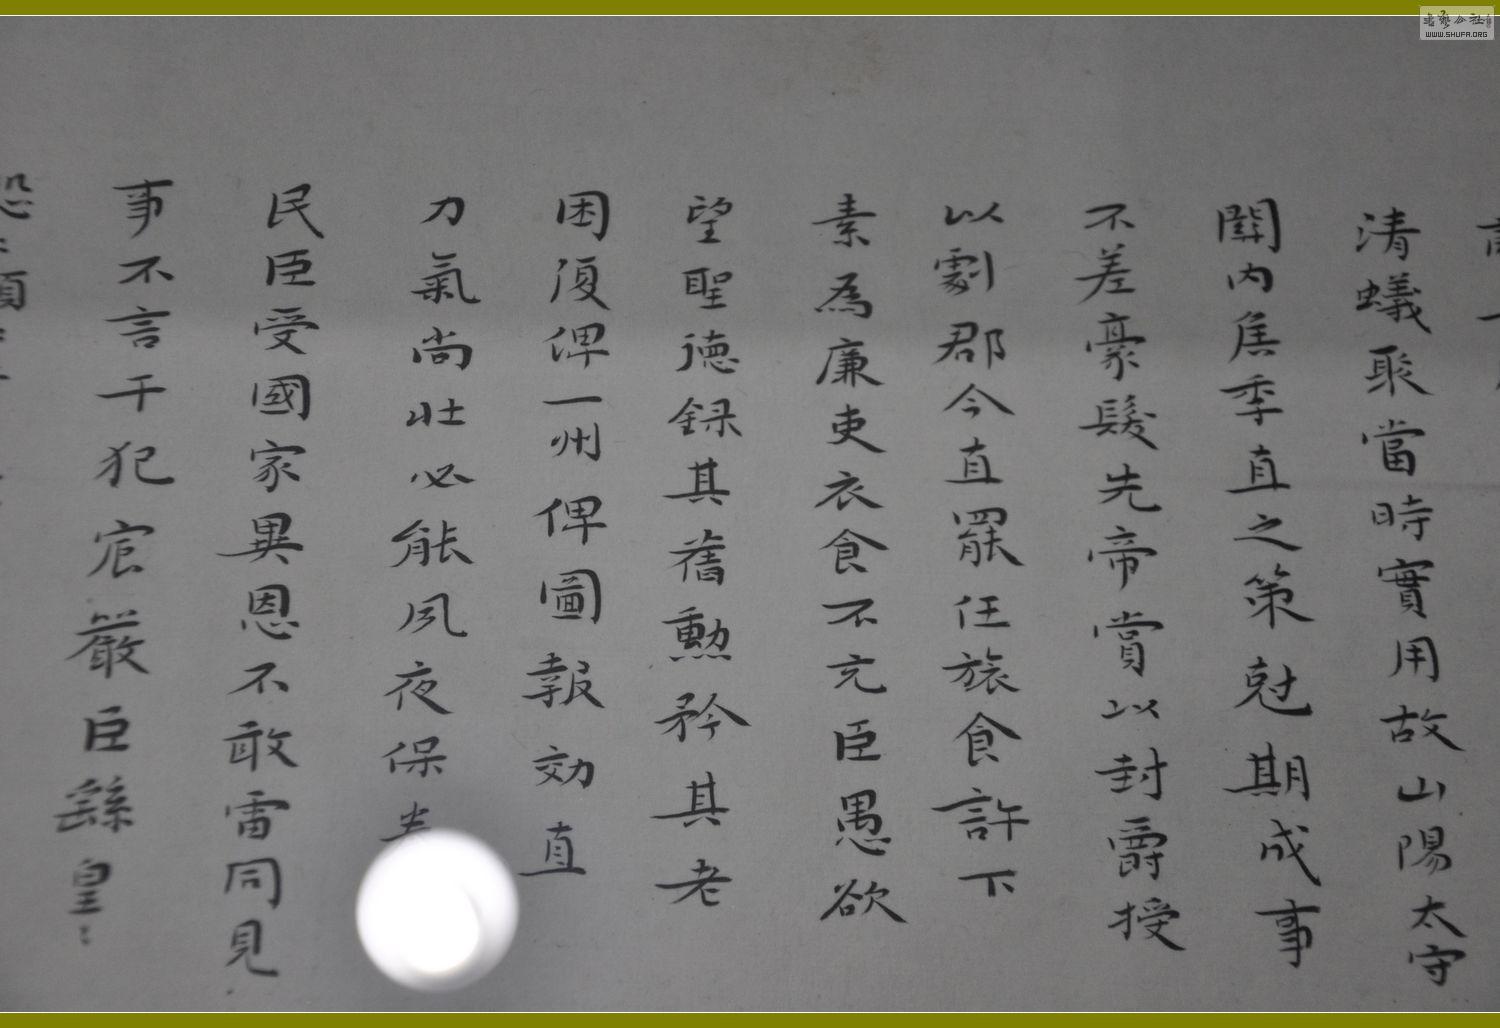 清蟻聚當時實用故山陽太守
關內矦季直之策尅期成事
不差豪髮先帝賞以封爵授
以劇郡今直罷任旅食許下
素為廉吏衣食不充臣愚欲
望聖德録其舊勲矜其老
困復俾一州俾圖報効直
力氣尚壯必能夙夜保養
民臣受國家異恩不敢雷同見
事不言干犯宸嚴臣繇皇〻
恐〻頓
WWW.SHUFA.ORG